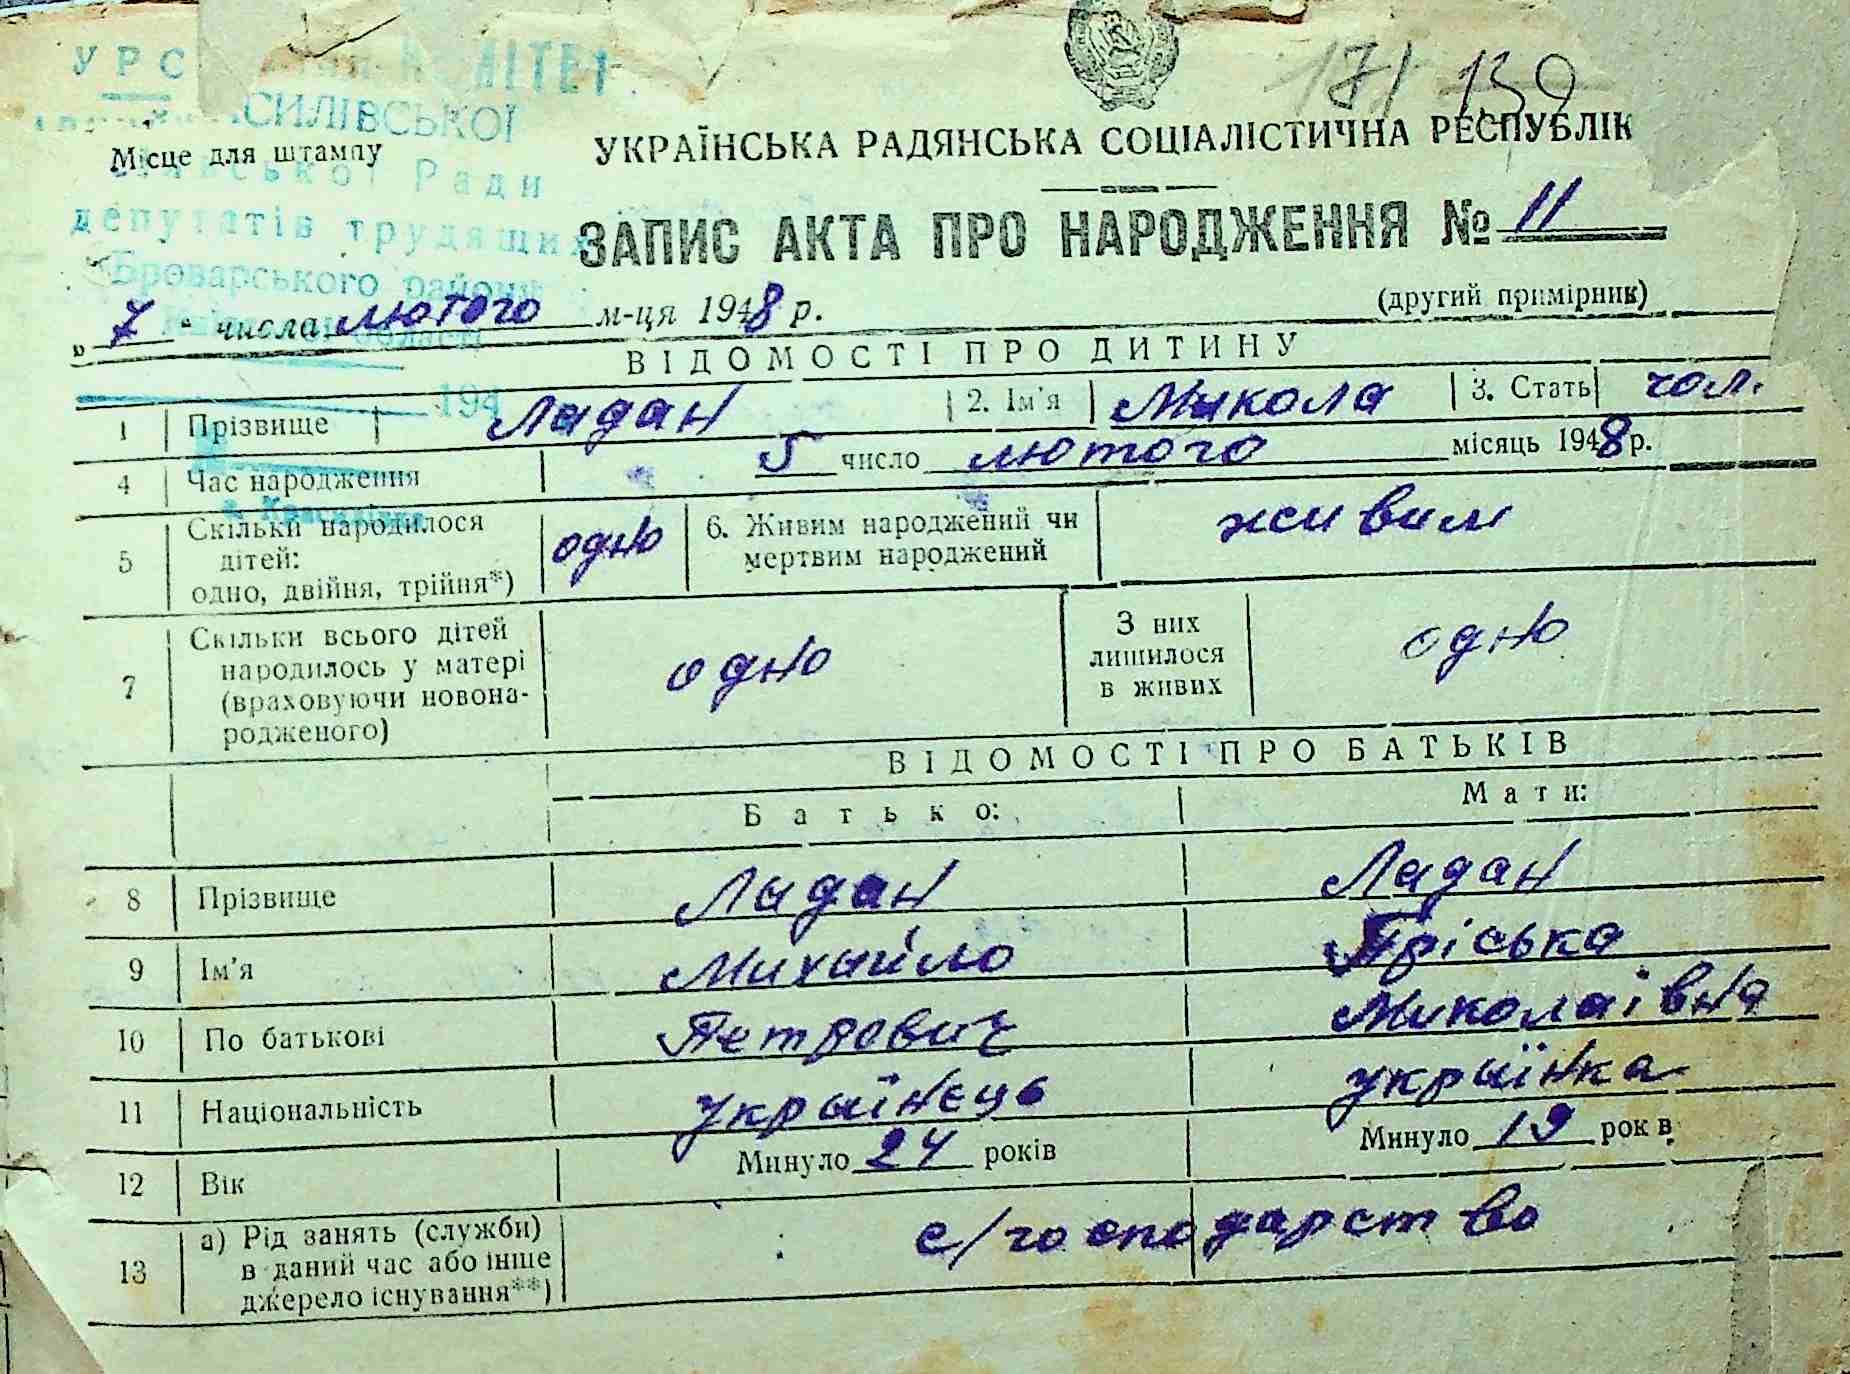 УРС КОМІТЕТ
СИЛІВСЬКОЇ
Ради
депутатів трудящих
Броварського району
області
194
171 130
УКРАЇНСЬКА РАДЯНСЬКА СОЦІАЛІСТИЧНА РЕСПУБЛІК
Місце для штампу
ЗАПИС АКТА ПРО НАРОДЖЕННЯ № 11
(другий примірник)
„ 7 " числа лютого м-ця 1948 р.
ВІДОМОСТІ ПРО ДИТИНУ
1 Прізвище Ладан 2. Ім'я Микола 3. Стать чол.
4 Час народження 5 число лютого місяць 1948 р.
5 Скільки народилося дітей: одно, двійня, трійня*) одно 6. Живим народжений чи мертвим народжений живим
7 Скільки всього дітей народилось у матері (враховуючи новонародженого) одно З них лишилося в живих одно
ВІДОМОСТІ ПРО БАТЬКІВ
Батько: Мати:
8 Прізвище Ладан Ладан
9 Ім'я Михайло Пріська
10 По батькові Петрович Миколаівна
11 Національність українець українка
12 Вік Минуло 24 років Минуло 19 рок в
13 а) Рід занять (служби) в даний час або інше джерело існування**) с/господарство